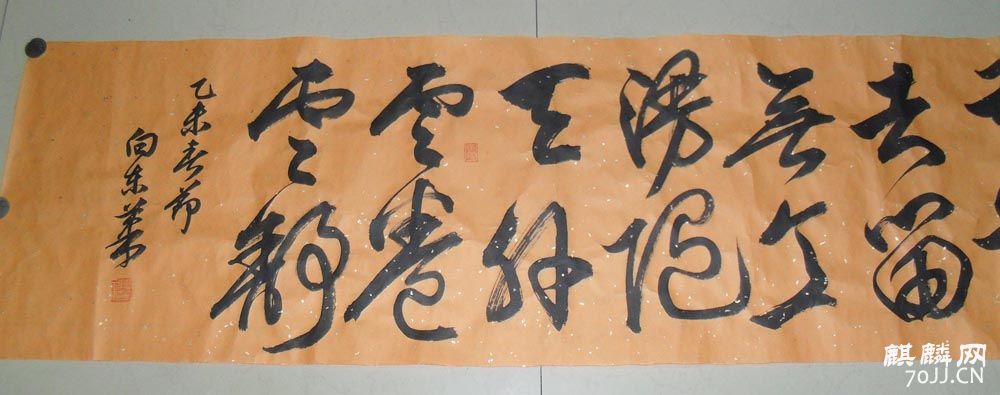 去留
無意
漫隨
天外
雲卷
雲舒
乙未春节
向东
麒麟网
70JJ.CN